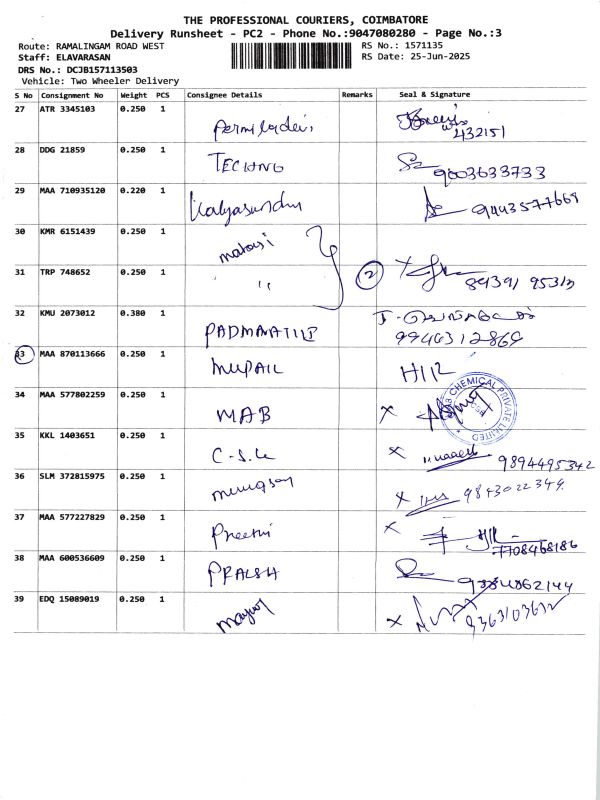 THE PROFESSIONAL COURIERS, COIMBATORE
Delivery Runsheet - PC2 - Phone No.:9047080280 - Page No.:3
Route: RAMALINGAM ROAD WEST
RS No.: 1571135
Staff: ELAVARASAN
RS Date: 25-Jun-2025
DRS No.: DCJB157113503
Vehicle: Two Wheeler Delivery
S No Consignment No Weight PCS Consignee Details Remarks Seal & Signature
27 ATR 3345103 0.250 1
432151
28 DDG 21859 0.250 1 TECHNO
9003633733
29 MAA 710935120 0.220 1
9443577669
30 KMR 6151439 0.250 1
31 TRP 748652 0.250 1 " 2
84391 95313
32 KMU 2073012 0.380 1
9940312869
33 MAA 870113666 0.250 1
34 MAA 577802259 0.250 1 MAB
CHEMICAL PRIVATE LIMITED
35 KKL 1403651 0.250 1
9894495342
36 SLM 372815975 0.250 1
9843022349
37 MAA 577227829 0.250 1 Preethi
7708468186
38 MAA 600536609 0.250 1
39 EDQ 15089019 0.250 1
9363103612